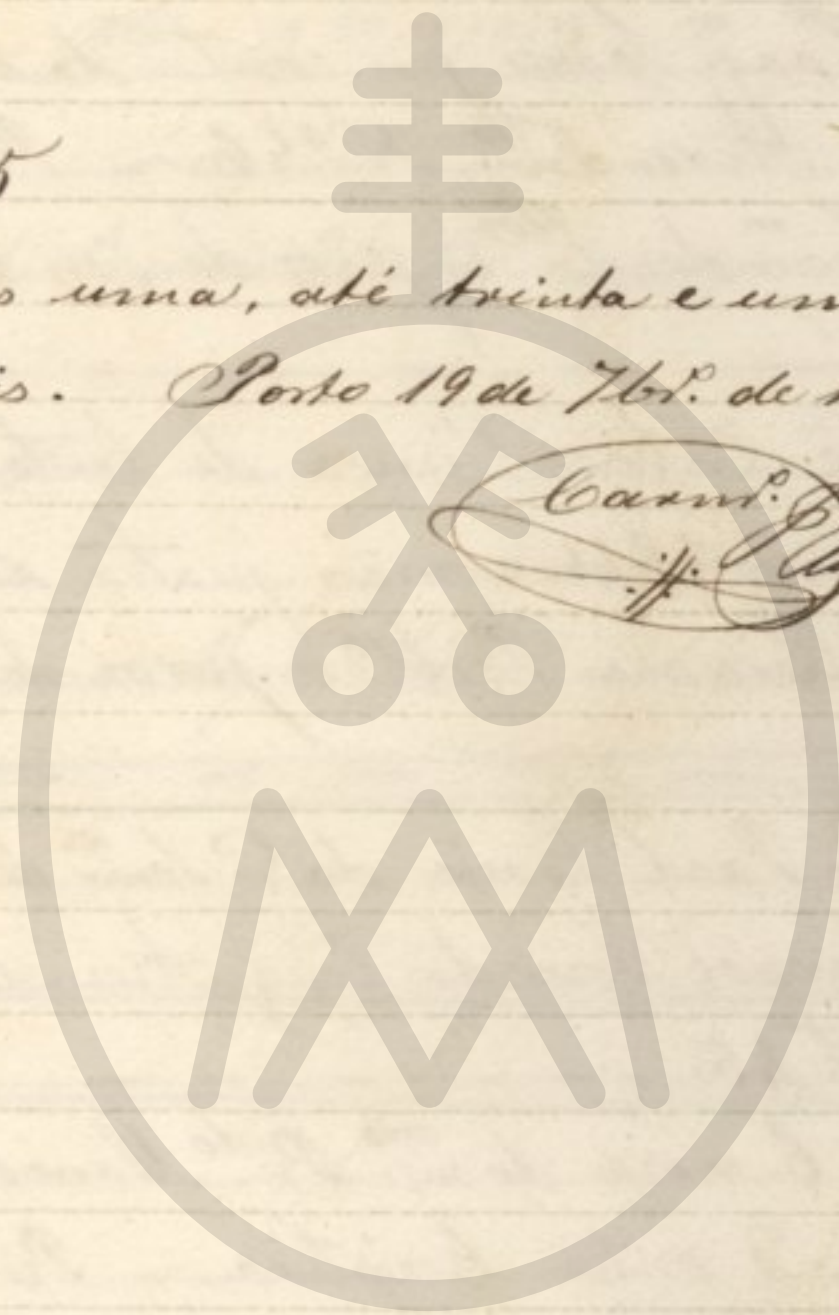 5
s uma, até trinta e um
is. Porto 19 de 7br.º de
Carnr.º